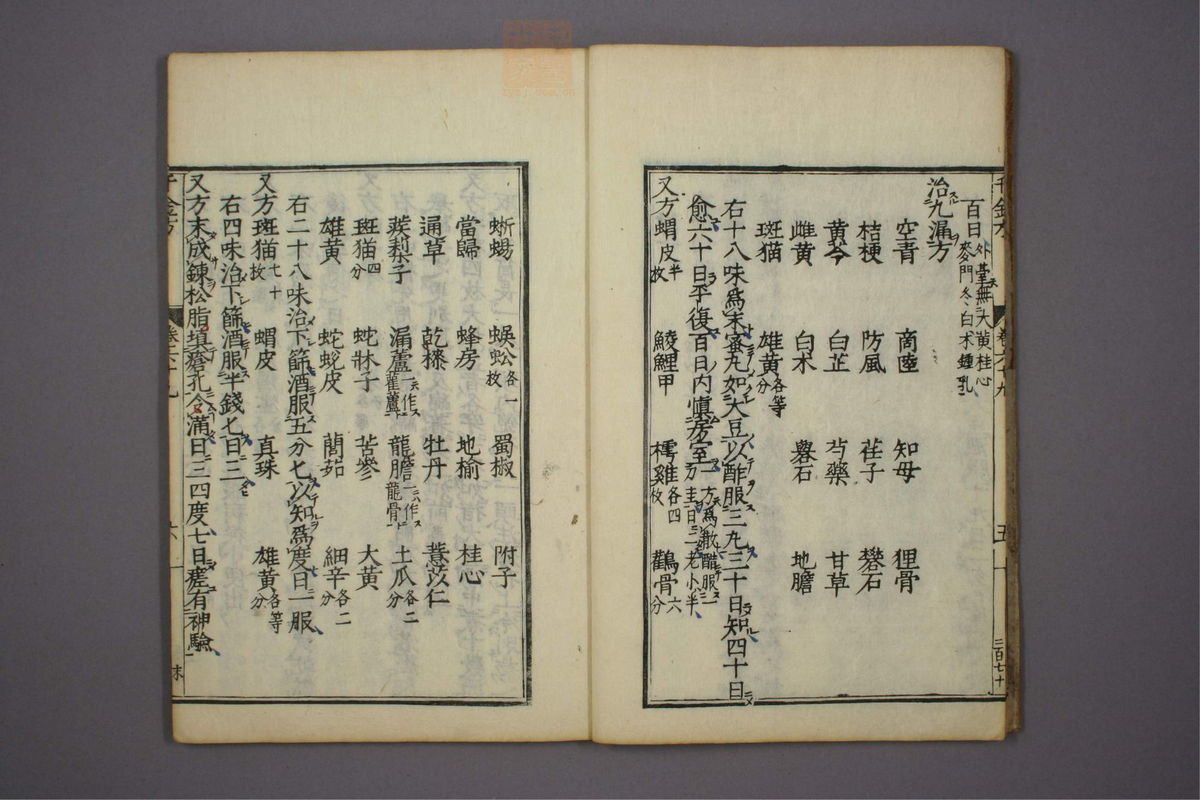 百日外臺無大黃桂心麥門冬白术鍾乳
治九漏方
空青 商陸 知母 狸骨
桔梗 防風 荏子 礬石
黃芩 白芷 芍藥 甘草
雌黃 白术 礜石 地膽
斑猫 雄黃各等分
右十八味爲末蜜丸如大豆以酢服三丸三十日知四十日
愈六十日平復百日內愼房室一方爲散醋服一刀圭日三老小半
又方蝟皮半枚 鯪鯉甲 樗雞各四枚 鸛骨六分
蜥蜴 蜈蚣各一枚 蜀椒 附子
當歸 蜂房 地榆 桂心
通草 乾漆 牡丹 薏苡仁
蒺梨子 漏蘆一云作雚蘆 龍膽一云作龍骨 土瓜各二分
斑猫四分 蛇牀子 苦參 大黃
雄黃 蛇蛻皮 䕡茹 細辛各二
右二十八味治下篩酒服五分匕以知爲度日一服
又方斑猫七十枚 蝟皮 真珠 雄黃各等分
右四味治下篩酒服半錢匕日三
又方末成鍊松脂塡瘡孔令滿日三四度七日瘥有神驗
千金方 卷六十九 五 三百七十
千金方 卷六十九 六 末